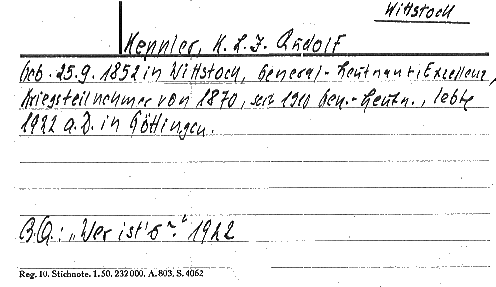 Wittstock
Kennler, K. L. F. Rudolf
geb. 25.9.1852 in Wittstock, General-Leutnant, Exzellenz,
Kriegsteilnehmer von 1870, seit 1910 Gen.-Leutn., lebte
1922 a.D. in Göttingen.
B.Q.: „Wer ist's?" 1922
Reg. 10. Stichnote. 1. 50. 232 000. A. 803. S. 4062